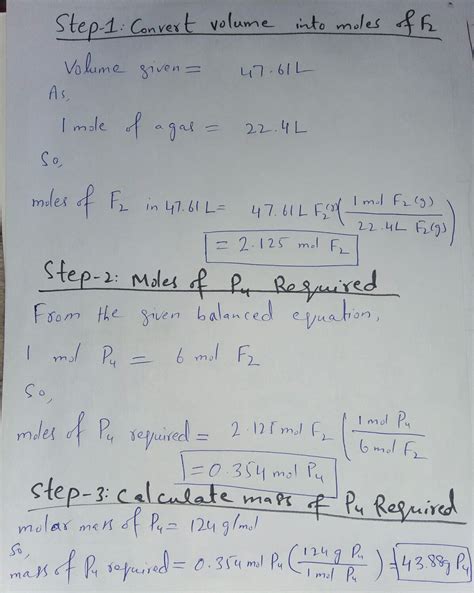 Step-1: Convert volume into moles of F₂
Volume given = 47.61L
As,
1 mole of a gas = 22.4L
So,
moles of F₂ in 47.61L = 47.61L F₂(g) (1 mol F₂(g) / 22.4L F₂(g))
= 2.125 mol F₂
Step-2: Moles of P₄ Required
From the given balanced equation,
1 mol P₄ = 6 mol F₂
So,
moles of P₄ required = 2.125 mol F₂ (1 mol P₄ / 6 mol F₂
= 0.354 mol P₄
Step-3: Calculate mass of P₄ Required
molar mass of P₄ = 124 g/mol
So,
mass of P₄ required = 0.354 mol P₄ (124 g P₄ / 1 mol P₄) = 43.88g P₄